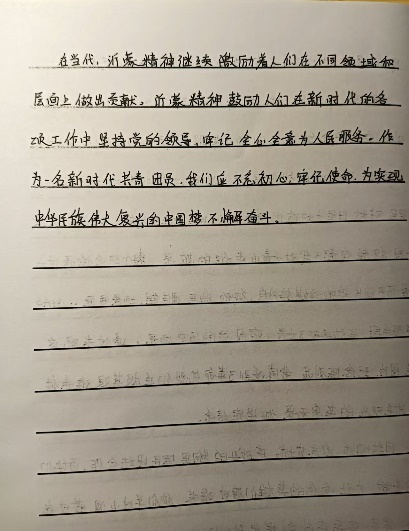 在当代，沂蒙精神继续激励着人们在不同领域和
层面上做出贡献。沂蒙精神鼓励人们在新时代的各
项工作中坚持党的领导，牢记全心全意为人民服务。作
为一名新时代共青团员，我们应不忘初心，牢记使命，为实现
中华民族伟大复兴的中国梦不懈奋斗。